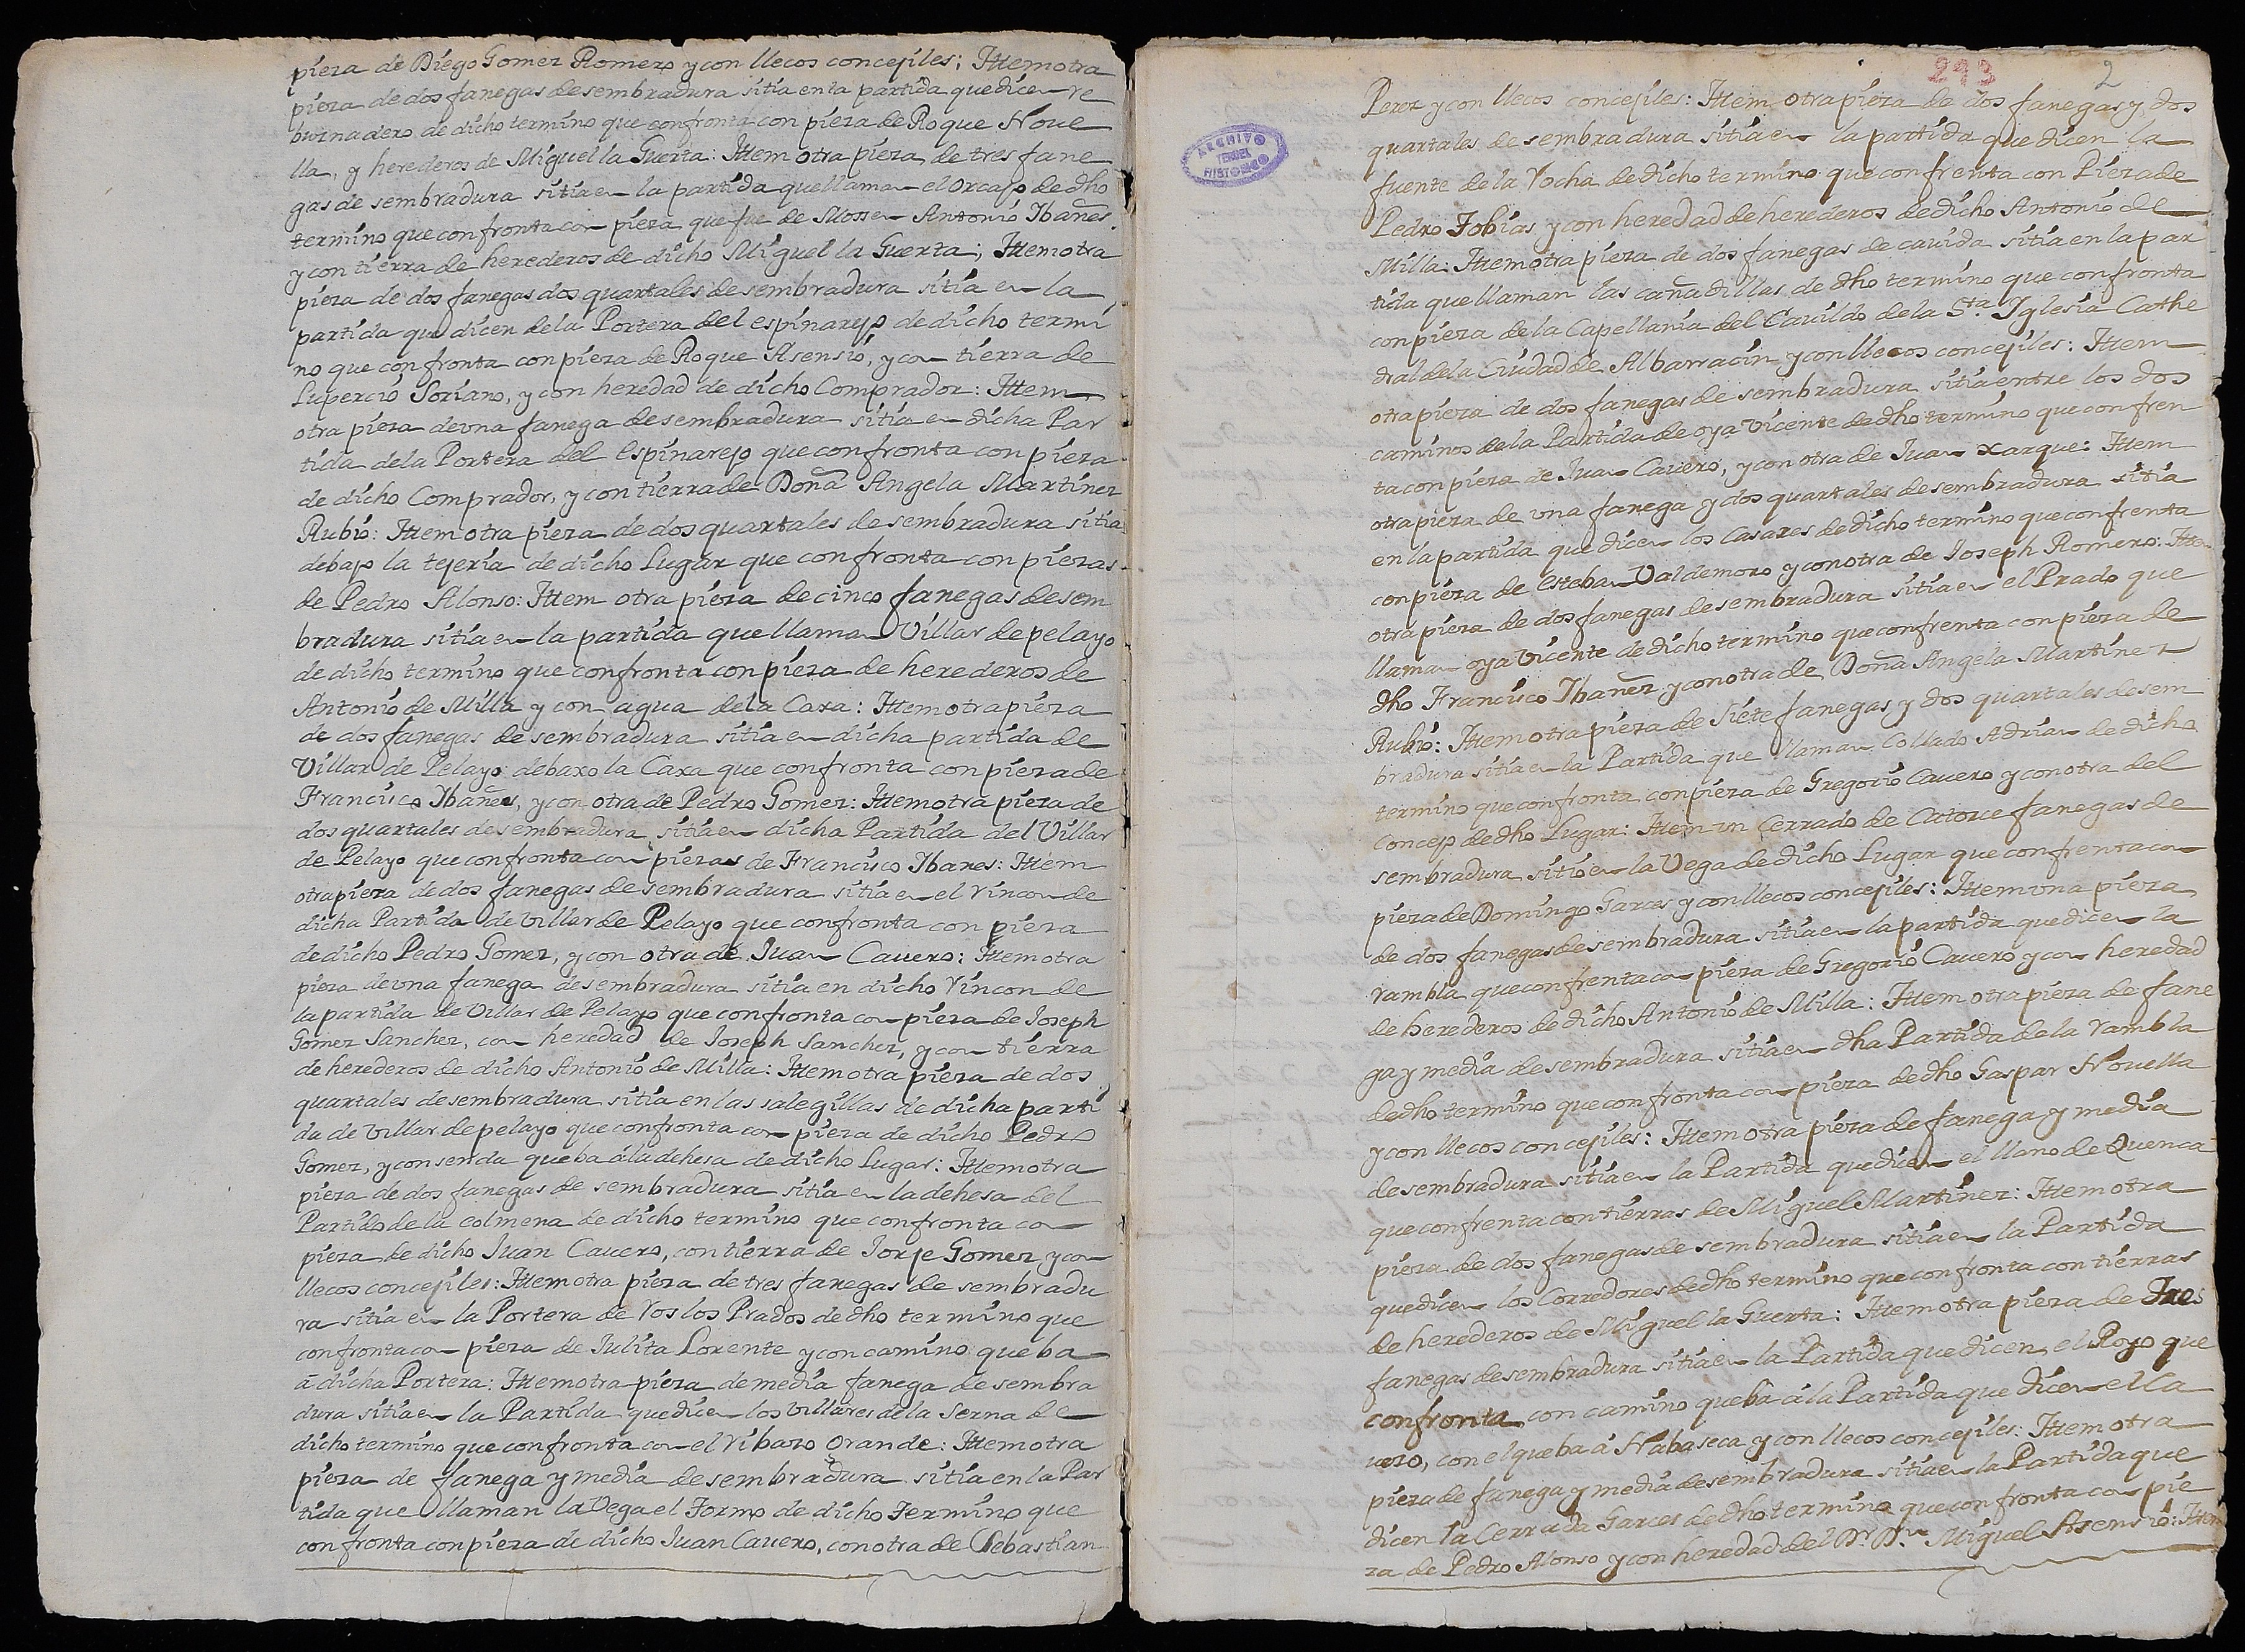 pieza de Diego Gomez Romero y con llecos concejiles; Ittem otra
pieza de dos fanegas de sembradura sitia en la partida que dicen re
buznadero de dicho termino que confronta con pieza de Roque Noue
lla, y herederos de Miguel la Guerta: Ittem otra pieza de tres fane
gas de sembradura sitia en la partida que llaman el orcajo de dho
termino que confronta con pieza que fue de Mossen Antonio Ibañes
y con tierra de herederos de dicho Miguel la Guerta; Ittem otra
pieza de dos fanegas dos quartales de sembradura sitia en la
partida que dicen de la Portera del espinarejo de dicho termi
no que confronta con pieza de Roque Asensio, y con tierra de
Lupercio Soriano, y con heredad de dicho Comprador: Ittem
otra pieza de vna fanega de sembradura sitia en dicha Par
tida de la Portera del Espinarejo que confronta con pieza
de dicho Comprador, y con tierra de Doña Angela Martinez
Rubio: Ittem otra pieza de dos quartales de sembradura sitia
debajo la tejeria de dicho Lugar que confronta con piezas
de Pedro Alonso: Ittem otra pieza de cinco fanegas de sem
bradura sitia en la partida que llaman Villar de pelayo
de dicho termino que confronta con pieza de herederos de
Antonio de Milla y con agua de la Caxa: Ittem otra pieza
de dos fanegas de sembradura sitia en dicha partida de
Villar de Pelayo debaxo la Caxa que confronta con pieza de
Francisco Ybañes, y con otra de Pedro Gomez: Ittem otra pieza de
dos quartales de sembradura sitia en dicha Partida del Villar
de Pelayo que confronta con piezas de Francisco Ybanes: Ittem
otra pieza de dos fanegas de sembradura sitia en el rincon de
dicha Partida de villar de Pelayo que confronta con pieza
de dicho Pedro Gomez, y con otra de Juan Cauero: Ittem otra
pieza de vna fanega de sembradura sitia en dicho rincon de
la partida de Villar de Pelayo que confronta con pieza de Joseph
Gomez Sanchez, con heredad de Joseph Sanchez, y con tierra
de herederos de dicho Antonio de Milla: Ittem otra pieza de dos
quartales de sembradura sitia en las salegillas de dicha parti
da de villar de pelayo que confronta con pieza de dicho Pedro
Gomez, y con senda que ba a la dehesa de dicho Lugar: Ittem otra
pieza de dos fanegas de sembradura sitia en la dehesa del
Partido de la colmena de dicho termino que confronta con
pieza de dicho Juan Cauero, con tierra de Jorje Gomez y con
llecos concejiles: Ittem otra pieza de tres fanegas de sembradu
ra sitia en la Portera de ros los Prados de dho termino que
confronta con pieza de Julita Lorente y con camino que ba
a dicha Portera: Ittem otra pieza de media fanega de sembra
dura sitia en la Partida que dicen los villares de la Serna de
dicho termino que confronta con el ribazo grande: Ittem otra
pieza de fanega y media de sembradura sitia en la Par
tida que llaman la Vega el Tormo de dicho Termino que
confronta con pieza de dicho Juan Cauero, con otra de Sebastian
293 2
ARCHIVO
TERUEL
HISTORICO
Perez y con llecos concejiles: Ittem otra pieza de dos fanegas y dos
quartales de sembradura sitia en la partida que dicen la
fuente de la Rocha de dicho termino que confrenta con Pieza de
Pedro Tobias y con heredad de herederos de dicho Antonio de
Milla: Ittem otra pieza de dos fanegas de cauida sitia en la par
tida que llaman las cañadillas de dho termino que confronta
con pieza de la Capellania del Cauildo de la Sta. Yglesia Cathe
dral de la Ciudad de Albarracin y con llecos concejiles: Ittem
otra pieza de dos fanegas de sembradura sitia entre los dos
caminos de la Partida de oya Vicente de dho termino que confren
ta con pieza de Juan Cauero, y con otra de Juan Xarque: Ittem
otra pieza de vna fanega y dos quartales de sembradura sitia
en la partida que dicen los Casares de dicho termino que confrenta
con pieza de Esteban Valdemoro y con otra de Joseph Romero: Ittem
otra pieza de dos fanegas de sembradura sitia en el Prado que
llaman oya Vicente de dicho termino que confrenta con pieza de
dho Francisco Ybañez y con otra de Doña Angela Martinez
Rubio: Ittem otra pieza de siete fanegas y dos quartales de sem
bradura sitia en la Partida que llaman Collado Adrian de dicho
termino que confronta con pieza de Gregorio Cauero y con otra del
Concejo de dho Lugar: Ittem un Cerrado de Catorce fanegas de
sembradura sitio en la Vega de dicho Lugar que confrenta con
pieza de Domingo Garces y con llecos concejiles: Ittem vna pieza
de dos fanegas de sembradura sitia en la partida que dicen la
rambla que confrenta con pieza de Gregorio Cauero y con heredad
de herederos de dicho Antonio de Milla: Ittem otra pieza de fane
ga y media de sembradura sitia en dha Partida de la rambla
de dho termino que confronta con pieza de dho Gaspar Nouella
y con llecos concejiles: Ittem otra pieza de fanega y media
de sembradura sitia en la Partida que dicen el llano de Quenca
que confrenta con tierras de Miguel Martinez: Ittem otra
pieza de dos fanegas de sembradura sitia en la Partida
que dicen los Corredores de dho termino que confronta con tierras
de herederos de Miguel la Guerta: Ittem otra pieza de Tres
fanegas de sembradura sitia en la Partida que dicen el Royo que
confronta con camino que ba a la Partida que dicen el la
uero, con el que ba a Nabaseca y con llecos concejiles: Ittem otra
pieza de fanega y media de sembradura sitia en la Partida que
dicen la Cerrada Garces de dho termino que confronta con pie
za de Pedro Alonso y con heredad del Dr. Dn. Miguel Asensio: Ittem